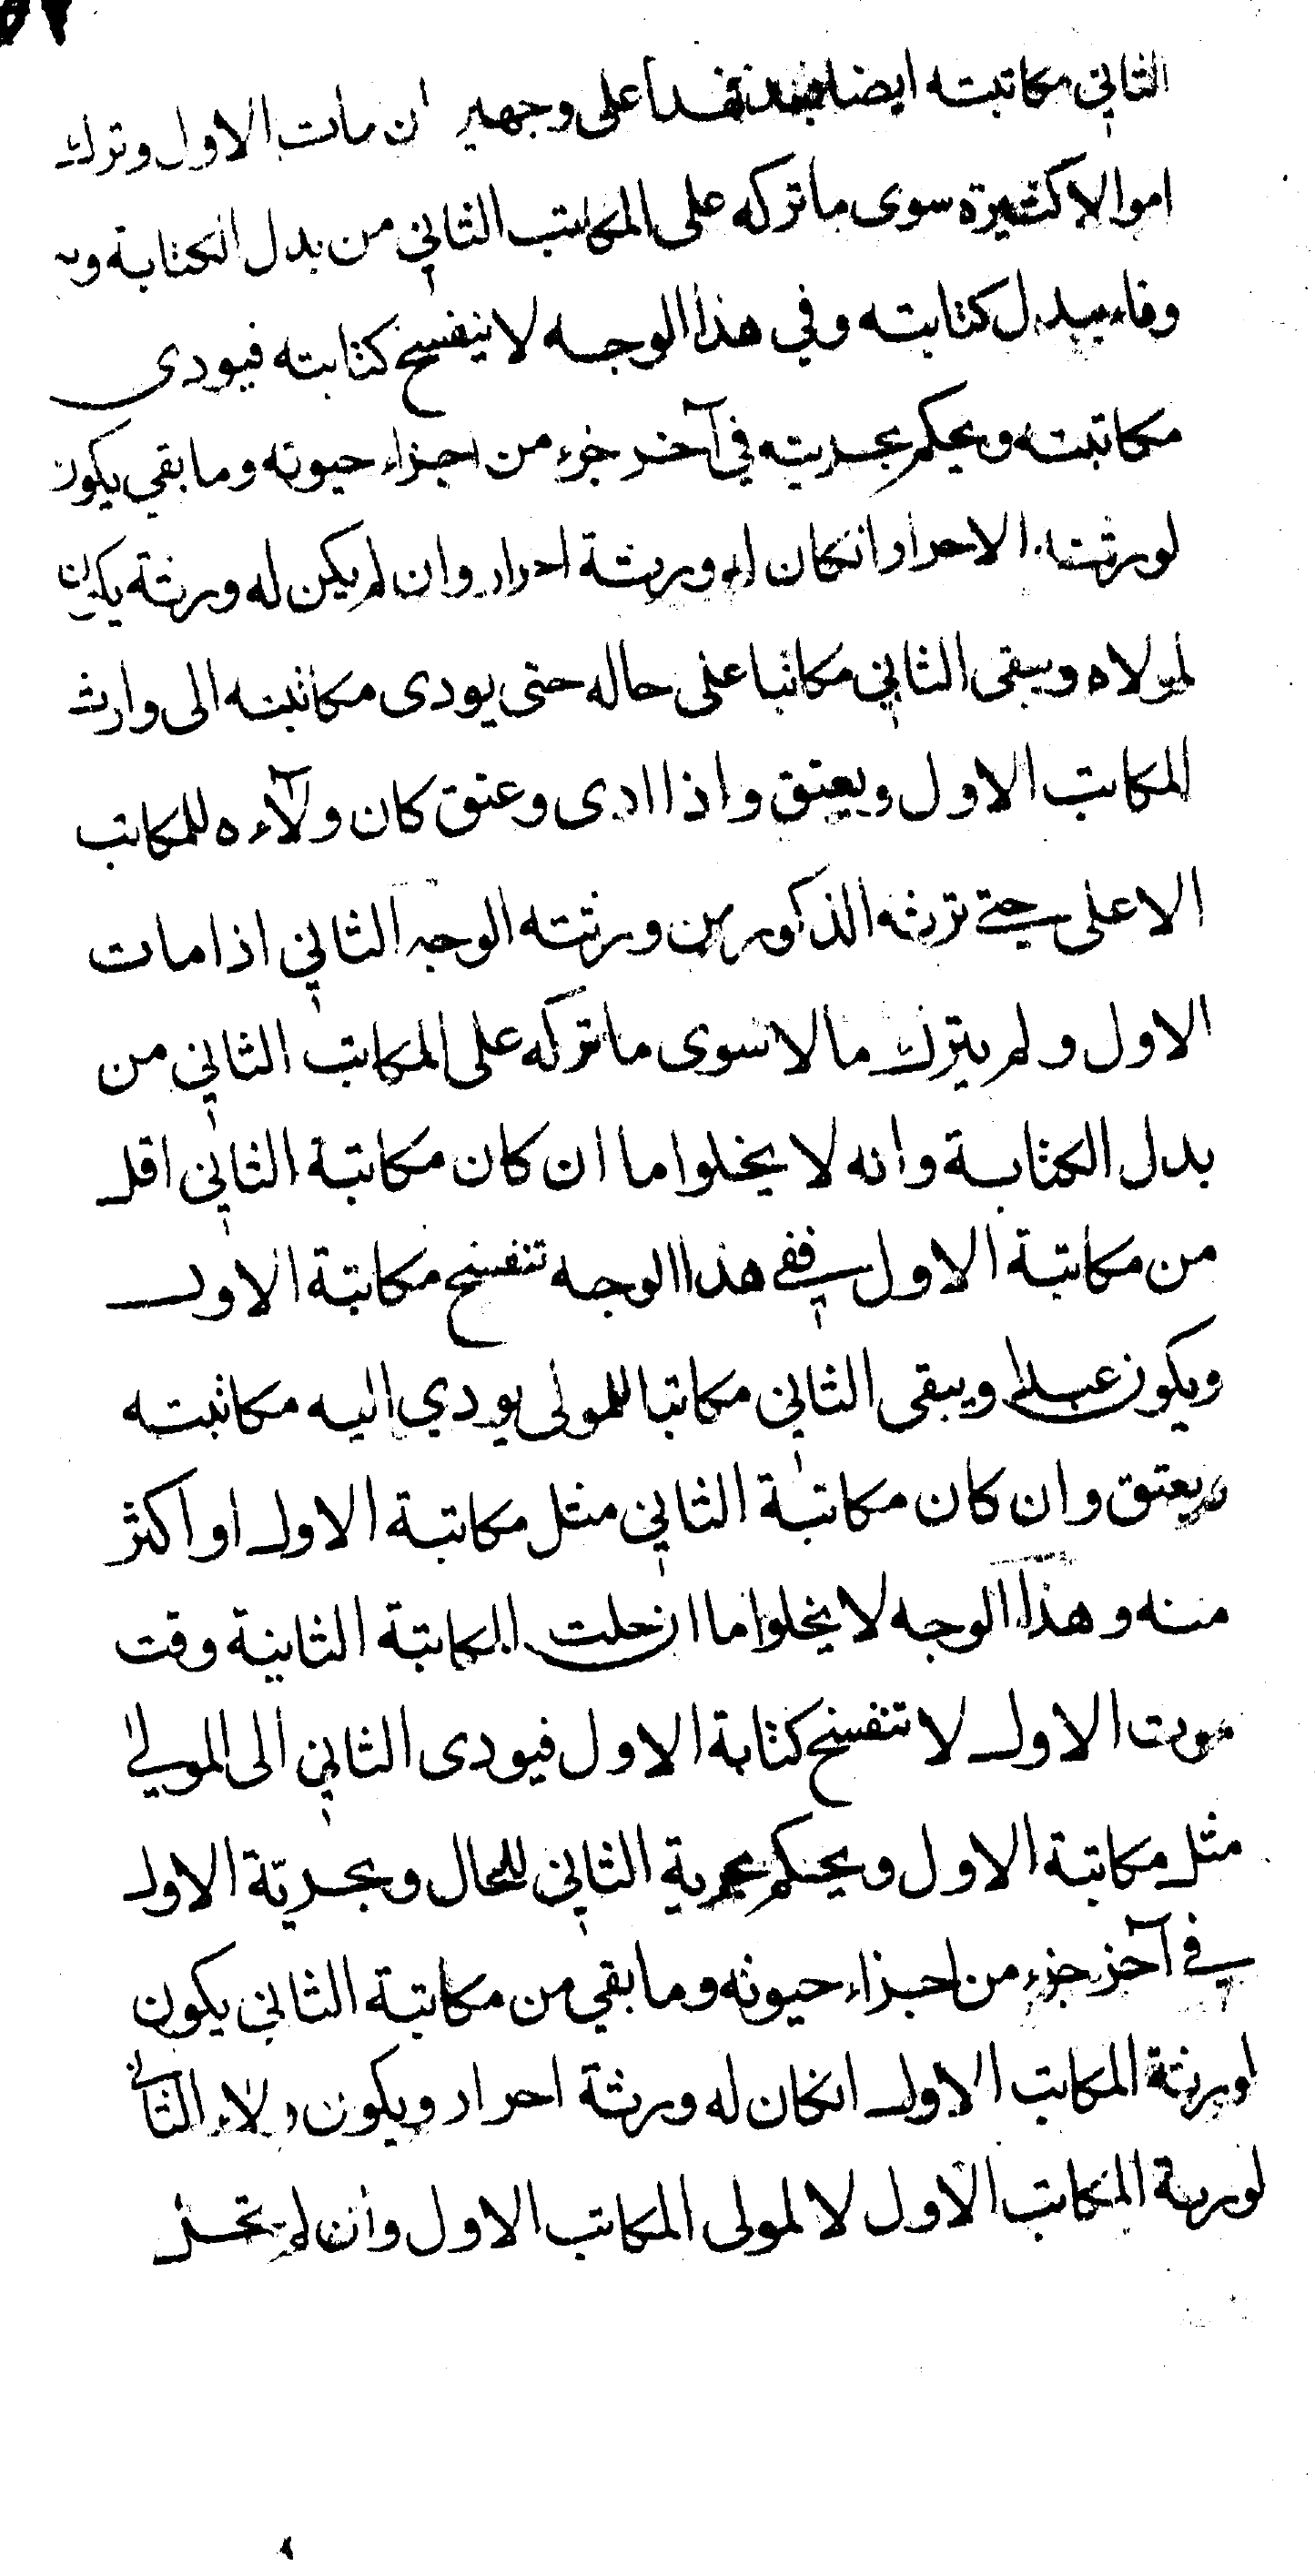 الثاني مكاتبته ايضا فهذا على وجهين ان مات الاول وترك
اموالا كثيرة سوى ما تركه على المكاتب الثاني من بدل الكتابة وبه
وفاء ببدل كتابته وفي هذا الوجه لا ينفسخ كتابته فيودى
مكاتبته ويحكم بحريته في آخر جزء من اجزاء حيوته وما بقي يكون
لورثته الاحرار انكان له ورثة احرار وان لم يكن له ورثة يكون
لمولاه ويبقى الثاني مكاتبا على حاله حتى يودى مكاتبته الى وارث
المكاتب الاول ويعتق واذا ادى وعتق كان ولآءه للمكاتب
الاعلى حتى ترثه الذكور من ورثته الوجه الثاني اذا مات
الاول ولم يترك مالا سوى ما تركه على المكاتب الثاني من
بدل الكتابة وانه لا يخلوا ما ان كان مكاتبة الثاني اقل
من مكاتبة الاول ففي هذا الوجه تنفسخ مكاتبة الاول
ويكون عبدا ويبقى الثاني مكاتبا للمولى يودي اليه مكاتبته
ويعتق وان كان مكاتبة الثاني مثل مكاتبة الاول او اكثر
منه وهذا الوجه لا يخلوا ما ان حلت المكاتبة الثانية وقت
موت الاول لا تنفسخ كتابة الاول فيودى الثاني الى المولى
مثل مكاتبة الاول ويحكم بحرية الثاني للحال وبحريّة الاول
في آخر جزء من اجزاء حيوته وما بقي من مكاتبة الثاني يكون
لورثة المكاتب الاول انكان له ورثة احرار ويكون ولاء الثاني
لورثة المكاتب الاول لا لمولى المكاتب الاول وان لم تحل